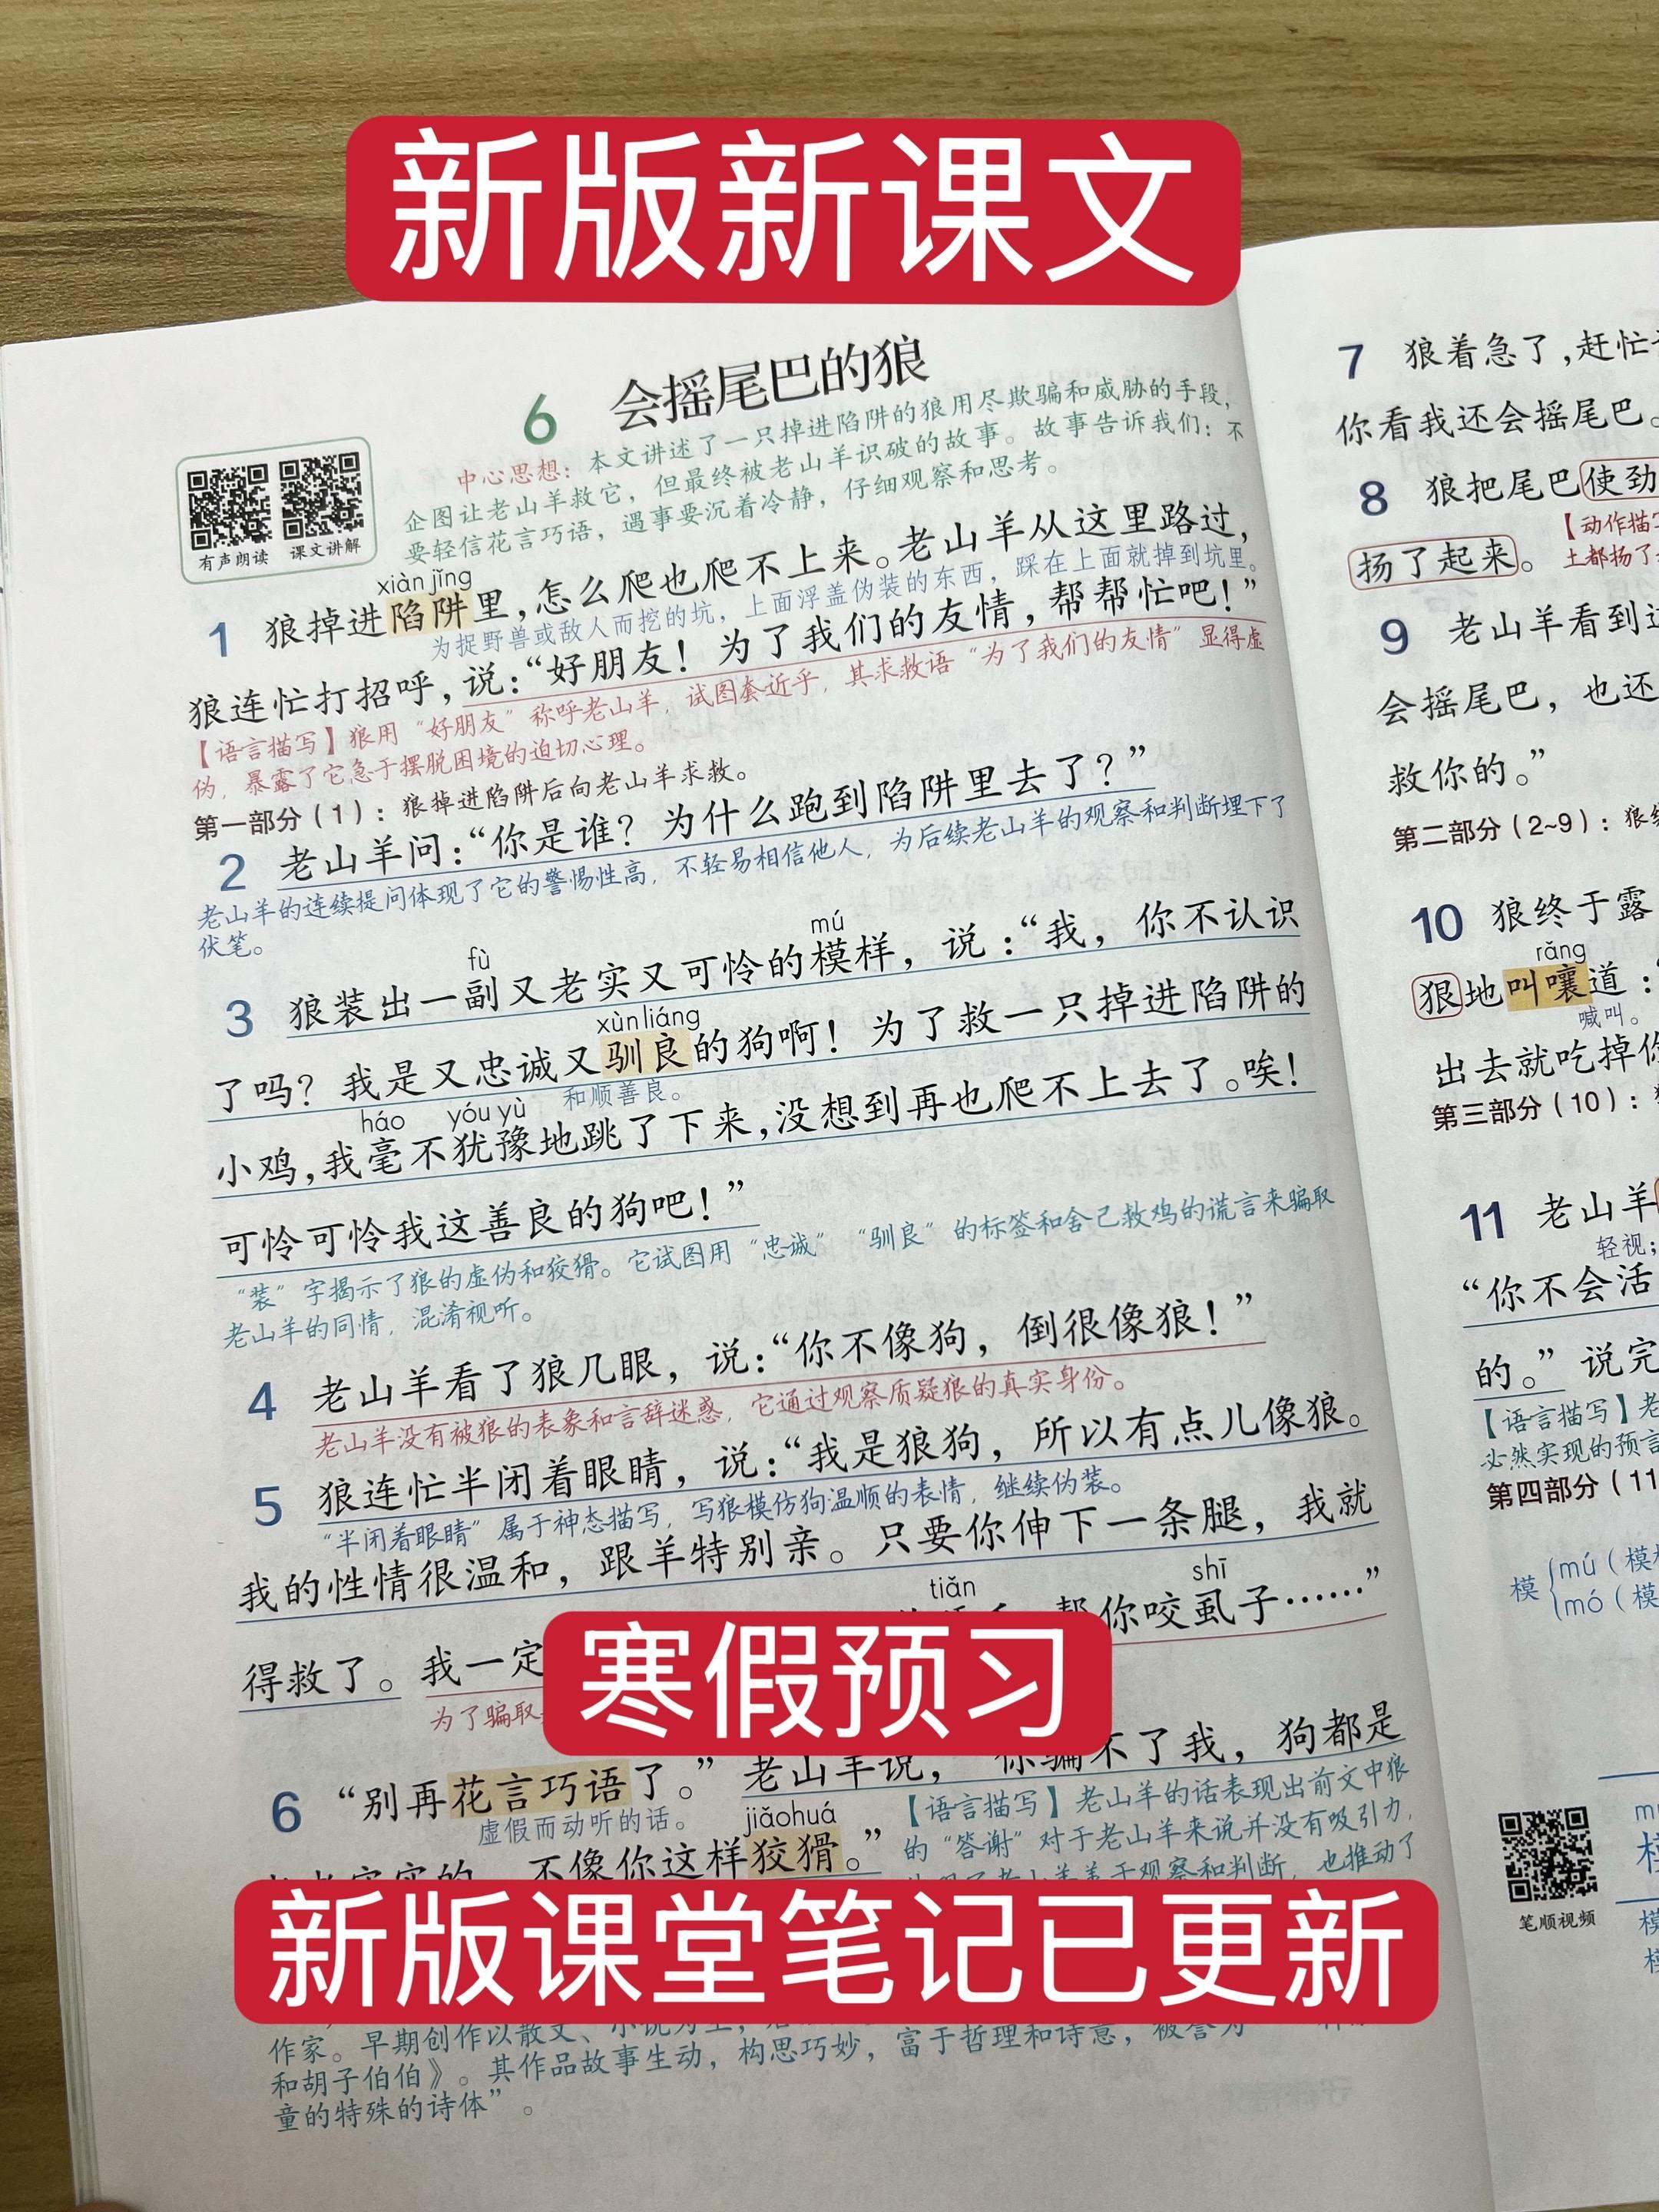 新版新课文
6 会摇尾巴的狼
中心思想：本文讲述了一只掉进陷阱的狼用尽欺骗和威胁的手段，
企图让老山羊救它，但最终被老山羊识破的故事。故事告诉我们：不
要轻信花言巧语，遇事要沉着冷静，仔细观察和思考。
有声朗读 课文讲解
xiàn jǐng
1 狼掉进陷阱里，怎么爬也爬不上来。老山羊从这里路过，
为捉野兽或敌人而挖的坑，上面浮盖伪装的东西，踩在上面就掉到坑里。
狼连忙打招呼，说：“好朋友！为了我们的友情，帮帮忙吧！”
【语言描写】狼用“好朋友”称呼老山羊，试图套近乎，其求救语“为了我们的友情”显得虚
伪，暴露了它急于摆脱困境的迫切心理。
第一部分（1）：狼掉进陷阱后向老山羊求救。
2 老山羊问：“你是谁？为什么跑到陷阱里去了？”
老山羊的连续提问体现了它的警惕性高，不轻易相信他人，为后续老山羊的观察和判断埋下了
伏笔。
fù mú
3 狼装出一副又老实又可怜的模样，说：“我，你不认识
xùn liáng
了吗？我是又忠诚又驯良的狗啊！为了救一只掉进陷阱的
和顺善良。
háo yóu yù
小鸡，我毫不犹豫地跳了下来，没想到再也爬不上去了。唉！
可怜可怜我这善良的狗吧！”
“装”字揭示了狼的虚伪和狡猾。它试图用“忠诚”“驯良”的标签和舍己救鸡的谎言来骗取
老山羊的同情，混淆视听。
4 老山羊看了狼几眼，说：“你不像狗，倒很像狼！”
老山羊没有被狼的表象和言辞迷惑，它通过观察质疑狼的真实身份。
5 狼连忙半闭着眼睛，说：“我是狼狗，所以有点儿像狼。
“半闭着眼睛”属于神态描写，写狼模仿狗温顺的表情，继续伪装。
我的性情很温和，跟羊特别亲。只要你伸下一条腿，我就
tiǎn shī
得救了。我一定
你咬虱子……”
为了骗取
寒假预习
6 “别再花言巧语了。”老山羊说，“你骗不了我，狗都是
虚假而动听的话。
jiǎohuá
不像你这样狡猾。”
【语言描写】老山羊的话表现出前文中狼
的“答谢”对于老山羊来说并没有吸引力，
老山羊善于观察和判断，也推动了
新版课堂笔记已更新
作家。早期创作以散文、小说为主，
和胡子伯伯》。其作品故事生动，构思巧妙，富于哲理和诗意，被誉为
童的特殊的诗体”。
7 狼着急了，赶忙
你看我还会摇尾巴。
8 狼把尾巴使劲
【动作描写
扬了起来。
土都扬了
9 老山羊看到这
会摇尾巴，也还
救你的。”
第二部分（2~9）：狼
10 狼终于露
rǎng
狠地叫嚷道：
喊叫。
出去就吃掉你
第三部分（10）：
11 老山羊
轻视；
“你不会活
的。”说完
【语言描写】老
必然实现的预言
第四部分（11
模 mú（模
mó（模
笔顺视频